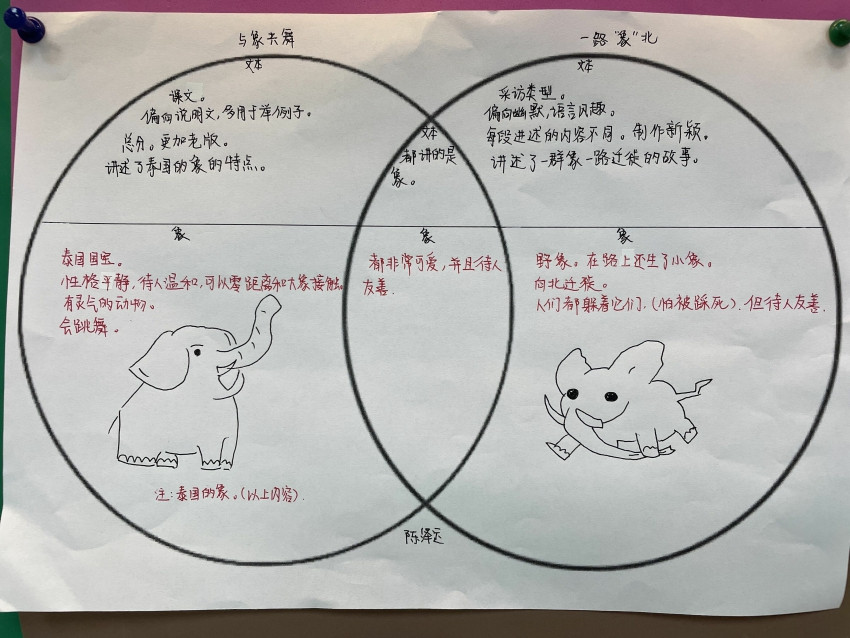 与象共舞
一路“象”北
文本
课文。
偏向说明文，多用于举例子。
总分。更加老版。
讲述了泰国的象的特点。
文本
都讲的是
象。
文本
采访类型。
偏向幽默，语言风趣。
每段讲述的内容不同。制作新颖。
讲述了一群象一路迁徙的故事。
象
泰国国宝。
性格平静，待人温和，可以零距离和大象接触。
有灵气的动物。
会跳舞。
注：泰国的象。（以上内容）.
象
都非常可爱，并且待人
友善.
象
野象。在路上还生了小象。
向北迁徙。
人们都躲着它们.（怕被踩死）.但待人友善.
陈泽运